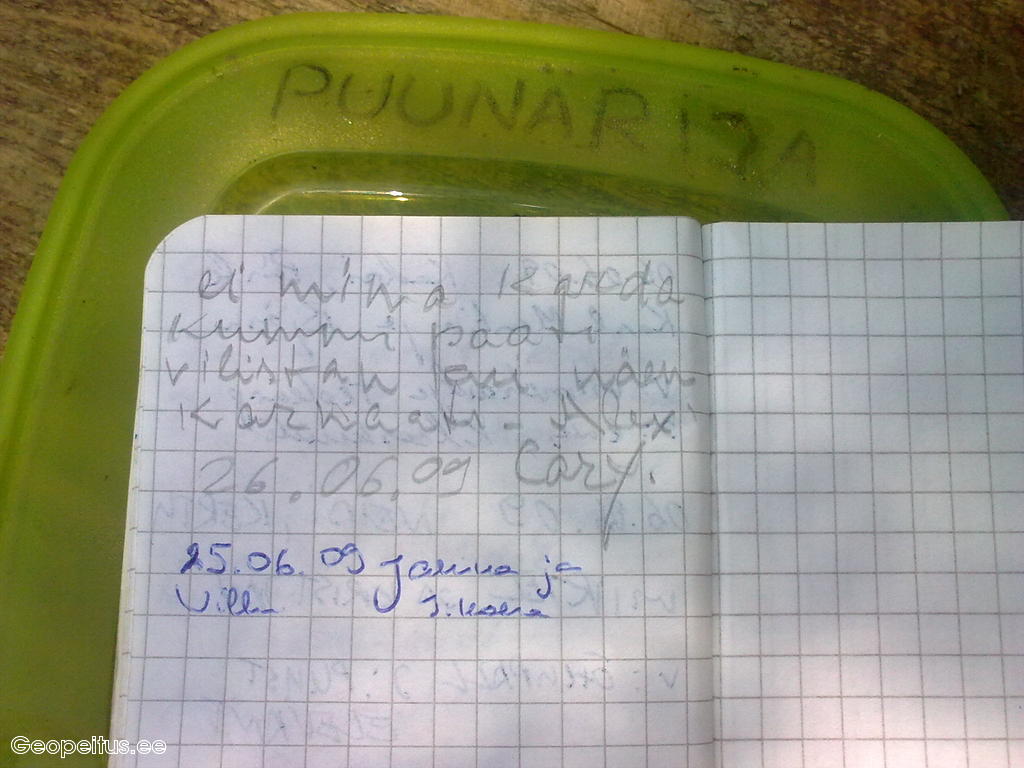 PUUNÄRIJA
ei mina karda
kummi paati
vilistan kui näen
kärnaati - Alex
26.06.09 Cäry.
25.06.09 Janina ja
Villu
Geopeitus.ee